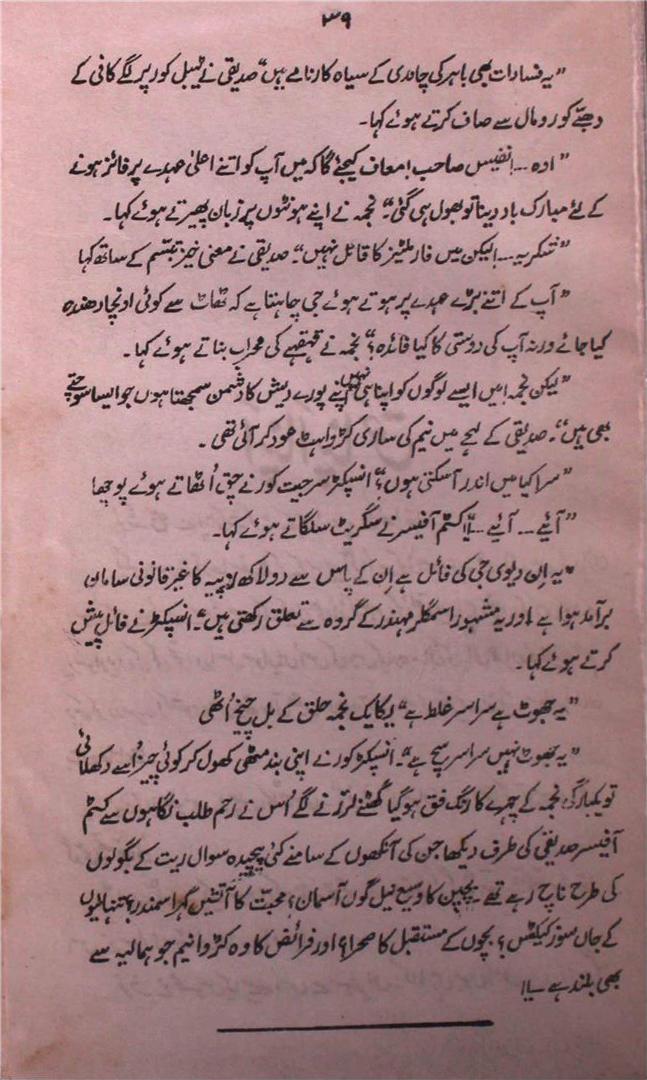 ۳۹
”یہ فسادات بھی باہر کی چاندی کے سیاہ کارنامے ہیں“ صدیقی نے ٹیبل کور پر لگے کافی کے
دھبّے کو رومال سے صاف کرتے ہوئے کہا۔
”اوہ ... انفیس صاحب! معاف کیجئے گا کہ میں آپ کو اتنے اعلیٰ عہدے پر فائز ہونے
کے لئے مبارک باد دینا تو بھول ہی گئی“۔ نجمہ نے اپنے ہونٹوں پر زبان پھیرتے ہوئے کہا۔
”شکریہ ... لیکن میں فارملٹیز کا قائل نہیں“۔ صدیقی نے معنی خیز تبسّم کے ساتھ کہا
”آپ کے اتنے بڑے عہدے پر ہوتے ہوئے جی چاہتا ہے کہ ٹھاٹ سے کوئی اونچا دھندہ
کیا جائے ورنہ آپ کی دوستی کا کیا فائدہ؟“ نجمہ نے قہقہے کی محراب بناتے ہوئے کہا۔
”لیکن نجمہ! میں ایسے لوگوں کو اپنا ہی نہیں اپنے پورے دیش کا دشمن سمجھتا ہوں جو ایسا سوچتے
بھی ہیں“۔ صدیقی کے لہجے میں نیم کی ساری کڑواہٹ عود کر آئی تھی۔
”سر! کیا میں اندر آسکتی ہوں؟“ انسپکٹر سرجیت کور نے چق اُٹھاتے ہوئے پوچھا
”آئیے ... آئیے ...“ کسٹم آفیسر نے سگریٹ سلگاتے ہوئے کہا۔
”یہ اِن دیوی جی کی فائل ہے اِن کے پاس سے دو لاکھ روپیہ کا غیر قانونی سامان
برآمد ہوا ہے اور یہ مشہور اسمگلر مہندر کے گروہ سے تعلق رکھتی ہیں“۔ انسپکٹر نے فائل پیش
کرتے ہوئے کہا۔
”یہ جھوٹ ہے سراسر غلط ہے“ یکایک نجمہ حلق کے بل چیخ اُٹھی
”یہ جھوٹ نہیں سراسر سچ ہے“۔ انسپکٹر کور نے اپنی بند مٹھی کھول کر کوئی چیز اُسے دکھلائی
تو یکبارگی نجمہ کے چہرے کا رنگ فق ہو گیا گھٹنے لرزنے لگے اُس نے رحم طلب نگاہوں سے کسٹم
آفیسر صدیقی کی طرف دیکھا جن کی آنکھوں کے سامنے کئی پیچیدہ سوال ریت کے بگولوں
کی طرح ناچ رہے تھے۔ بچپن کا وسیع نیل گوں آسمان؟ محبّت کا آتشیں گہرا سمندر؟ تنہائیوں
کے جاں سوز کیکٹس؟ بچوں کے مستقبل کا صحرا؟ اور فرائض کا وہ کڑوا نیم جو ہمالیہ سے
بھی بلند ہے۔!